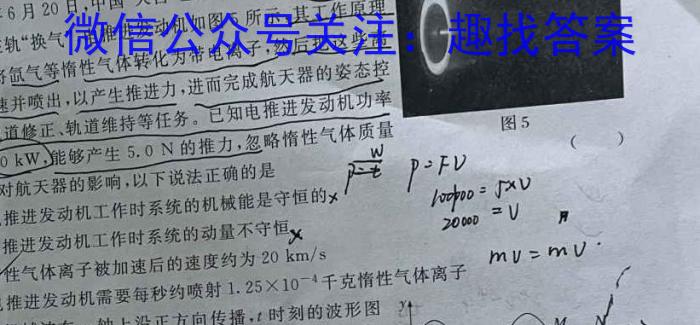 年6月20日,中国
微信公众号关注：趣找答案
在轨"换气" 推进发动机如图5所示,其工作原理
将氙气等惰性气体转化为带电离子,然后把这些离
速并喷出,以产生推进力,进而完成航天器的姿态控
道修正、轨道维持等任务。已知电推进发动机功率
0 kW,能够产生 5.0 N 的推力,忽略惰性气体质量
对航天器的影响,以下说法正确的是
( )
推进发动机工作时系统的机械能是守恒的×
推进发动机工作时系统的动量不守恒×
性气体离子被加速后的速度约为 20 km/s
推进发动机需要每秒约喷射 1.25×10⁻⁴千克惰性气体离子
轴上沿正方向传播,t 时刻的波形图
图5
P=W/t
P=FV
100000=5×V
20000=V
mv=mv
y
M
N